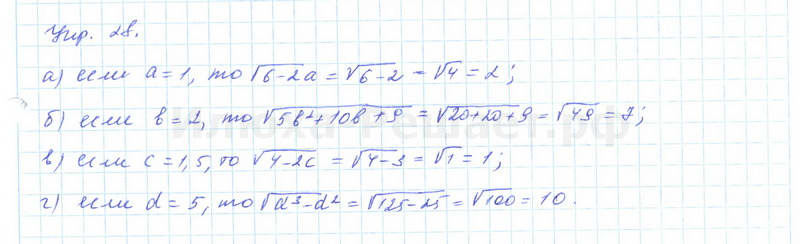 Упр. 28.
а) если a = 1, то √6-2a = √6-2 = √4 = 2;
б) если b = 2, то √5b²+10b+9 = √20+20+9 = √49 = 7;
в) если c = 1,5, то √4-2c = √4-3 = √1 = 1;
г) если d = 5, то √d³-d² = √125-25 = √100 = 10.
Илюха-Решает.рф